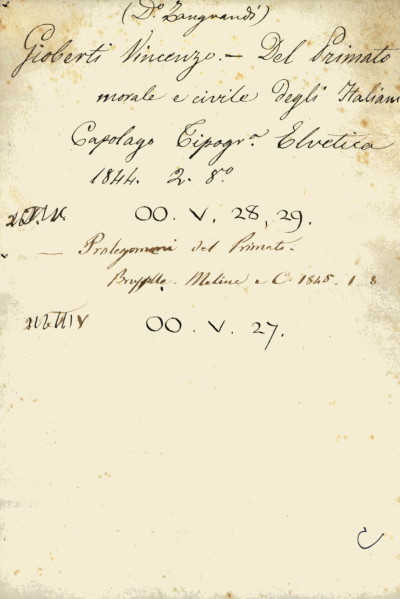 (D.º Zangrandi)
Gioberti Vincenzo. — Del Primato
morale e civile degli Italiani
Capolago Tipogr.ª Elvetica
1844. 2. 8.º
OO. V. 28, 29.
— Prolegomeni del Primato.
Brusselle. Meline e C. 1845. 1 8
OO. V. 27.